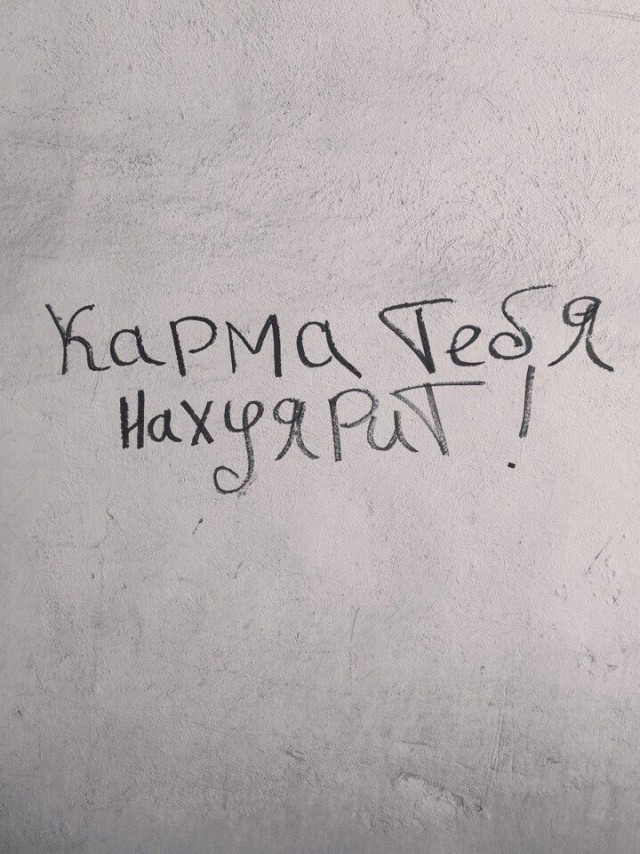 Карма тебя
нахуярит!